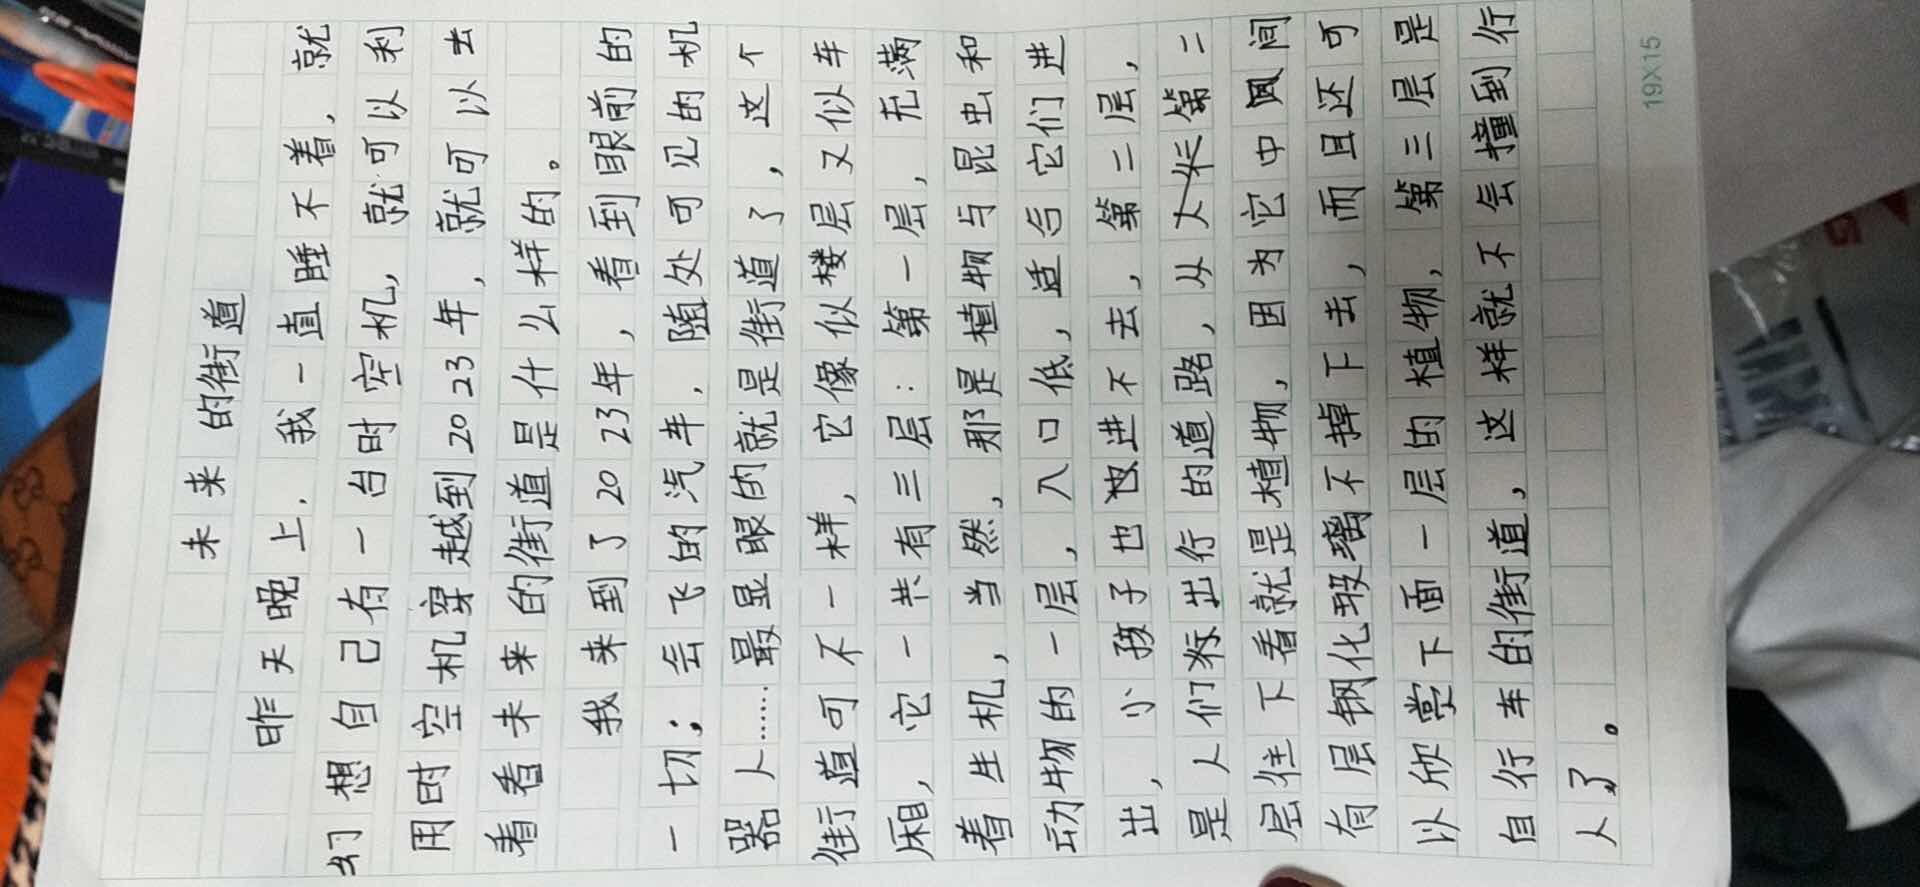 未来的街道
昨天晚上，我一直睡不着，就
幻想自己有一台时空机，就可以利
用时空机穿越到2023年，就可以去
看看未来的街道是什么样的。
我来到了2023年，看到眼前的
一切；会飞的汽车，随处可见的机
器人……最显眼的就是街道了，这个
街道可不一样，它像似楼层又似车
厢，它一共有三层：第一层，充满
着生机，当然，那是植物与昆虫和
动物的一层，入口低，适合它们进
出，小孩子也进不去，第二层，
是人们出行的道路，从第二
层往下看就是植物，因为它中间
有层钢化玻璃不掉下去，而且还可
以欣赏下面一层的植物，第三层是
自行车的街道，这样就不会撞到行
人了。
19X15